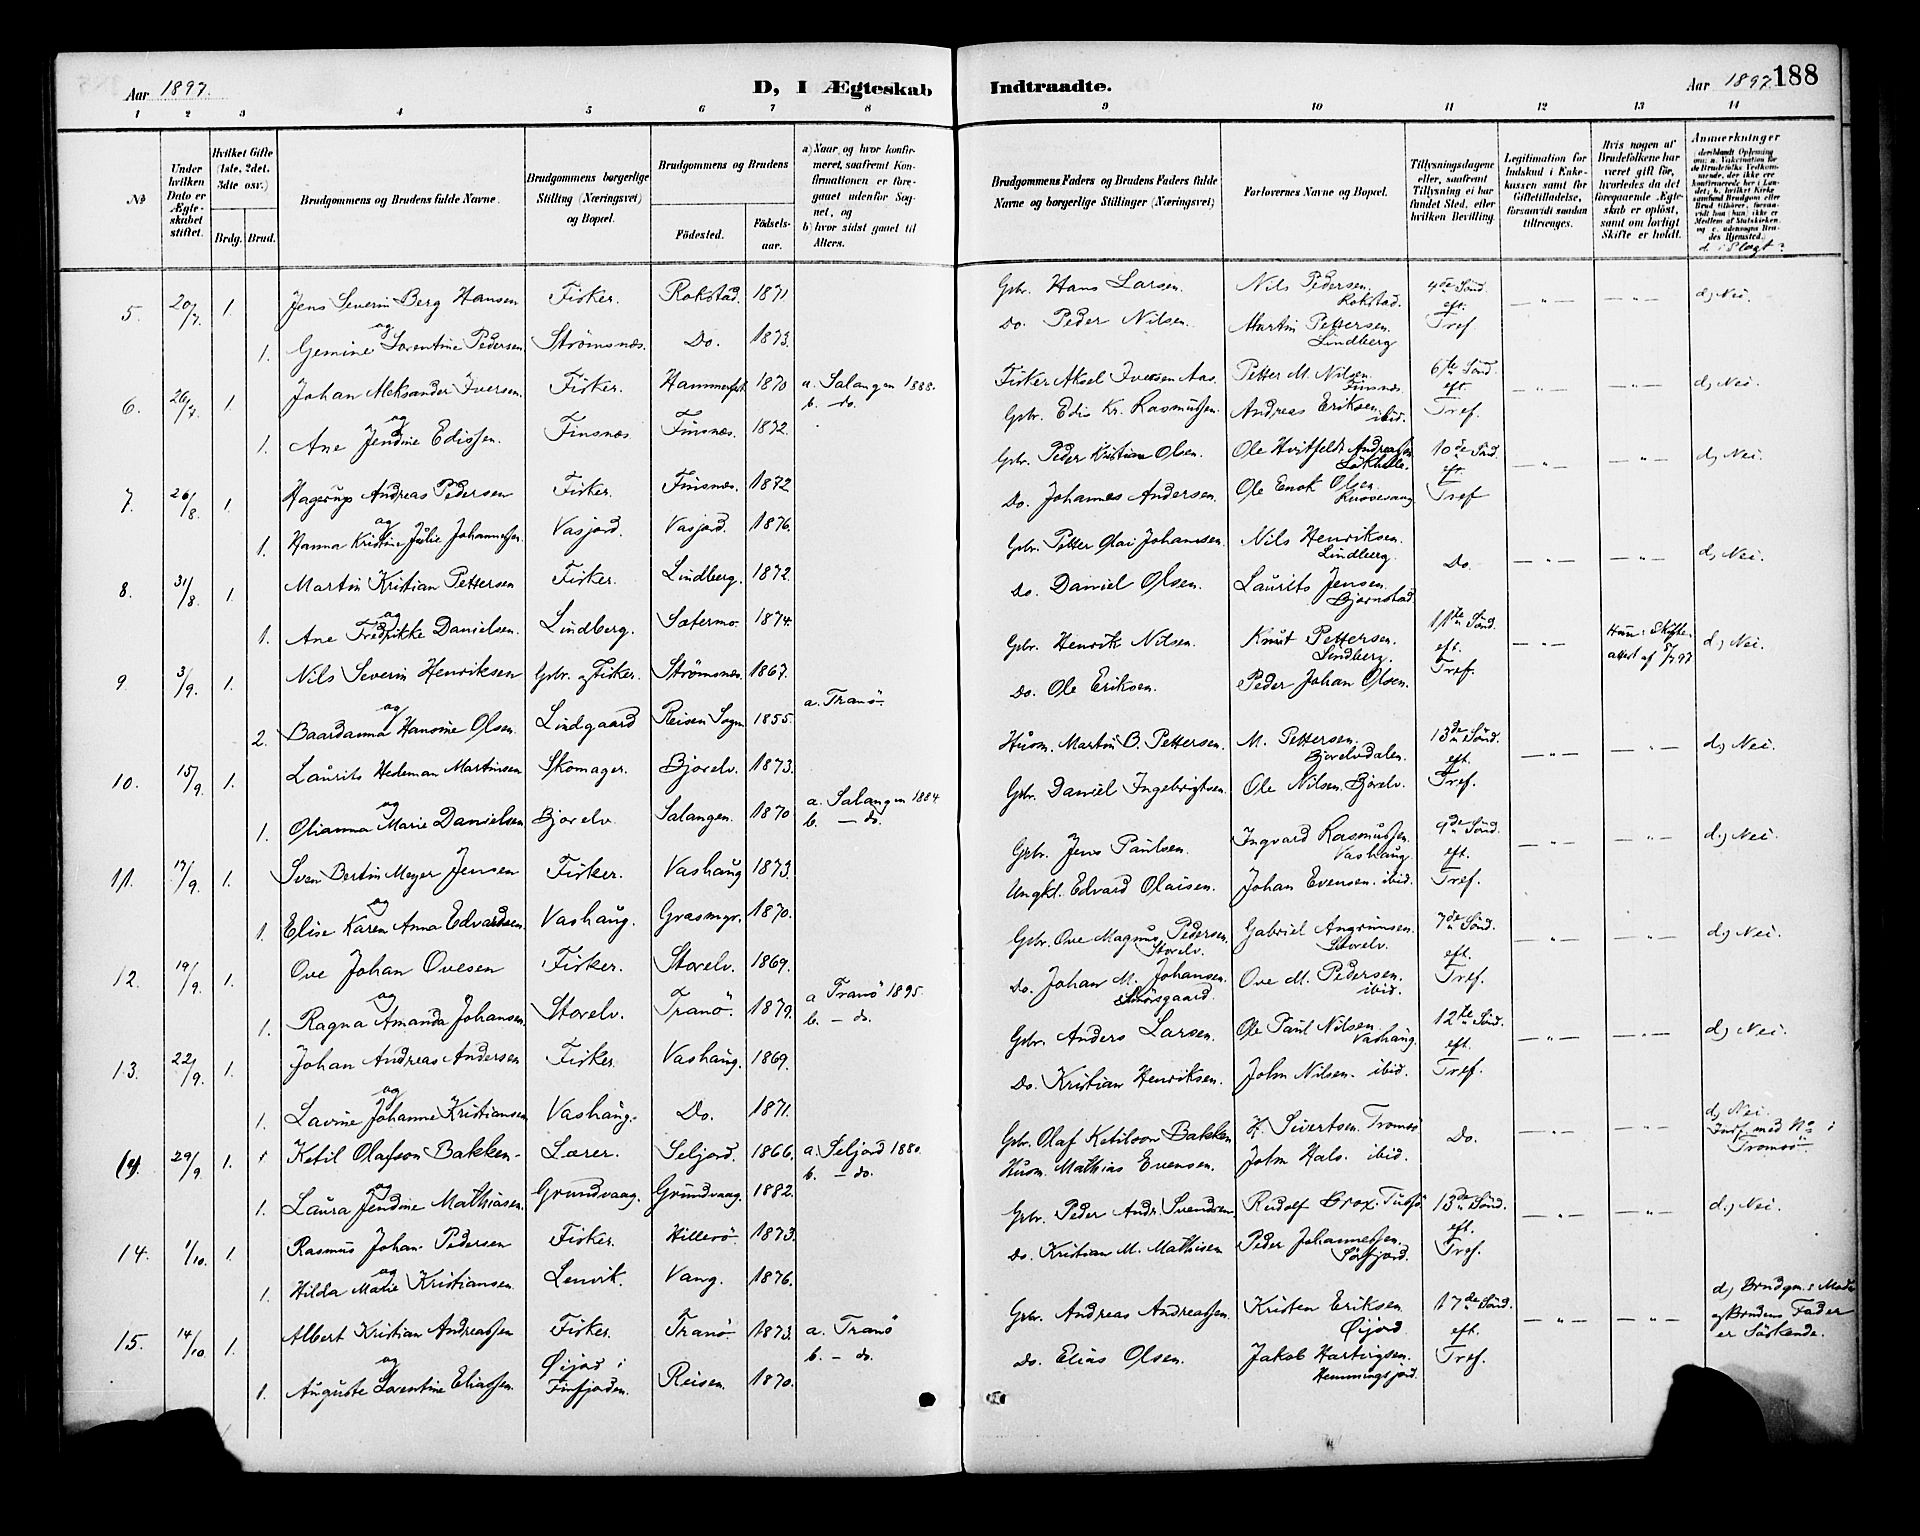 Aar 1897.
D, I Ægteskab
1 2 3 4 5 6 7 8
№
Under hvilken Dato er Ægteskabet stiftet.
Hvilket Gifte (1ste, 2det, 3die osv.)
Brdg. Brud.
Brudgommens og Brudens fulde Navne.
Brudgommens borgerlige Stilling (Næringsvei) og Bopæl.
Brudgommens og Brudens
Fødested. Fødselsaar.
a) Naar og hvor konfirmeret, saafremt Konfirmationen er foregaaet udenfor Sognet, og
b) hvor sidst gaaet til Alters.
5. 20/7. 1. Jens Severin Berg Hansen Fisker. Rokstad. 1871
og
1. Gemine Lorentine Pedersen Strømsnæs. Do. 1873.
6. 26/7. 1. Johan Aleksander Iversen Fisker. Hammerfest 1870 a. Salangen 1888.
b. do.
og
1. Ane Jendine Edissen. Finsnæs Finsnæs. 1872.
7. 26/8. 1. Hagerup Andreas Pedersen Fisker. Finsnæs. 1872
og
1. Hanna Kristine Julie Johannessen Vasjord. Vasjord. 1876.
8. 31/8. 1. Martin Kristian Pettersen Fisker. Lindberg. 1872.
og
1. Ane Fredrikke Danielsen. Lindberg. Sætermo. 1874.
9 3/9. 1. Nils Severin Henriksen Gbr. og Fisker. Strömsnæs. 1867.
a. Tranö.
og
2. Baardanna Hansine Olsen. Lindgaard Reisen Sogn 1855.
10. 15/9. 1. Laurits Hedeman Martinsen Skomager. Bjorelv. 1873.
og
1. Olianna Marie Danielsen Bjorelv Salangen. 1870 a. Salangen 1884
b. — do.
11. 17/9. 1. Sven Bertin Meyer Jensen Fisker. Vashaug 1873.
og
1. Elise Karen Anna Edvardsen Vashaug. Grasmyr. 1870.
12. 19/9. 1. Ove Johan Ovesen Fisker. Storelv. 1869.
og
1. Ragna Amanda Johansen. Storelv. Tranö. 1879. a Tranö 1895.
b. — do.
13. 22/9. 1. Johan Andreas Andersen Fisker. Vashaug. 1869.
og
1. Lavine Johanne Kristiansen Vashaug. Do. 1871.
29/9. 1. Ketil Olafson Bakken. Lærer. Seljord. 1866. a. Seljord 1880.
b. — do.
og
1. Laura Jendine Mathiasen. Grundvaag. Grundvaag. 1882.
14. 1/10. 1. Rasmus Johan Pedersen Fisker. Hillesö. 1873.
og
1. Hilda Marie Kristiansen. Lenvik. Vang. 1876.
15. 14/10. 1. Albert Kristian Andreassen Fisker. Tranö. 1873. a. Tranö
b. — do.
og
1. Auguste Lorentine Eliassen. Øijord i Finfjorden. Reisen. 1870.
Indtraadte.
Aar 1897. 188
9 10 11 12 13 14
Brudgommens Faders og Brudens Faders fulde Navne og borgerlige Stillinger (Næringsvei)
Forlovernes Navne og Bopæl.
Tillysningsdagene eller, saafremt Tillysning ei har fundet Sted, efter hvilken Bevilling.
Legitimation for Indskud i Enkekassen samt for Giftetilladelse, forsaavidt saadan tiltrænges.
Hvis nogen af Brudefolkene har været gift før, hvorledes da det foregaaende Ægteskab er opløst, samt om lovligt Skifte er holdt.
Anmerkninger
d. i Slægt?
Gbr. Hans Larsen. Nils Pedersen. Rokstad. 4de Sönd. eft. — „ — — „ — d) Nei.
Do. Peder Nilsen. Martin Pettersen. Lindberg Tref
Fisker Aksel Iversen Aas. Petter M. Nilsen. Finsnæs. 6te Sönd. eft. — „ — — „ — d) Nei.
Gbr. Edis Kr. Rasmussen. Andreas Eriksen. ibid. Tref.
Gbr. Peder Kristian Olsen. Ole Hvitfeldt Andreassen 10de Sönd. eft. — „ — — „ — d) Nei.
Do. Johannes Andersen. Ole Enok Olsen. Tref
Gbr. Petter Olai Johansen. Nils Henriksen. Lindberg. Do. — „ — — „ — d) Nei.
Do. Daniel Olsen. Laurits Jensen. Bjørnstad
Gbr. Henrik Nilsen. Knut Pettersen. Lindberg. 11te Sönd. eft. — „ — Hun: Skifteattest af 5/7 97 d) Nei.
Do. Ole Eriksen. Peder Johan Olsen. Tref.
Husm. Martin B. Pettersen. M. Pettersen. Bjorelvdalen. 13de Sönd. eft. — „ — — „ — d) Nei.
Gbr. Daniel Ingebrigtsen. Ole Nilsen. Bjorelv. Tref.
Gbr. Jens Paulsen. Ingvard Rasmussen. Vashaug. 9de Sönd. eft. — „ — — „ — d.) Nei.
Ungkl. Edvard Olaisen. Johan Evensen. ibid. Tref.
Gbr. Ove Magnus Pedersen. Storelv. Gabriel Angrimsen. Storelv. 7de Sönd. eft. — „ — — „ — d) Nei.
Do. Johan M. Johansen. Ove M. Pedersen. ibid. Tref.
Gbr. Anders Larsen. Ole Paul Nilsen. Vashaug. 12te Sönd. eft. — „ — — „ — d) Nei.
Do. Kristian Henriksen. John Nilsen. ibid. Tref.
Gbr. Olaf Ketilson Bakken H. Sivertsen. Tromsö Do. d) Nei.
Husm. Mathias Evensen. John Hals. ibid. Tromsö.
Gbr. Peder Andr. Svendsen. Rudolf Brox. 13de Sönd. eft. — „ — — „ — d.) Nei.
Do. Kristian M. Mathisen Peder Johannessen. Tref.
Gbr. Andreas Andreassen Kristen Eriksen Øijord 17de Sönd. eft. — „ — — „ — d) Brudgm.s Moder og Brudens Fader er Söskende.
Do. Elias Olsen. Jakob Hartvigsen. Hemmingsjord. Tref.